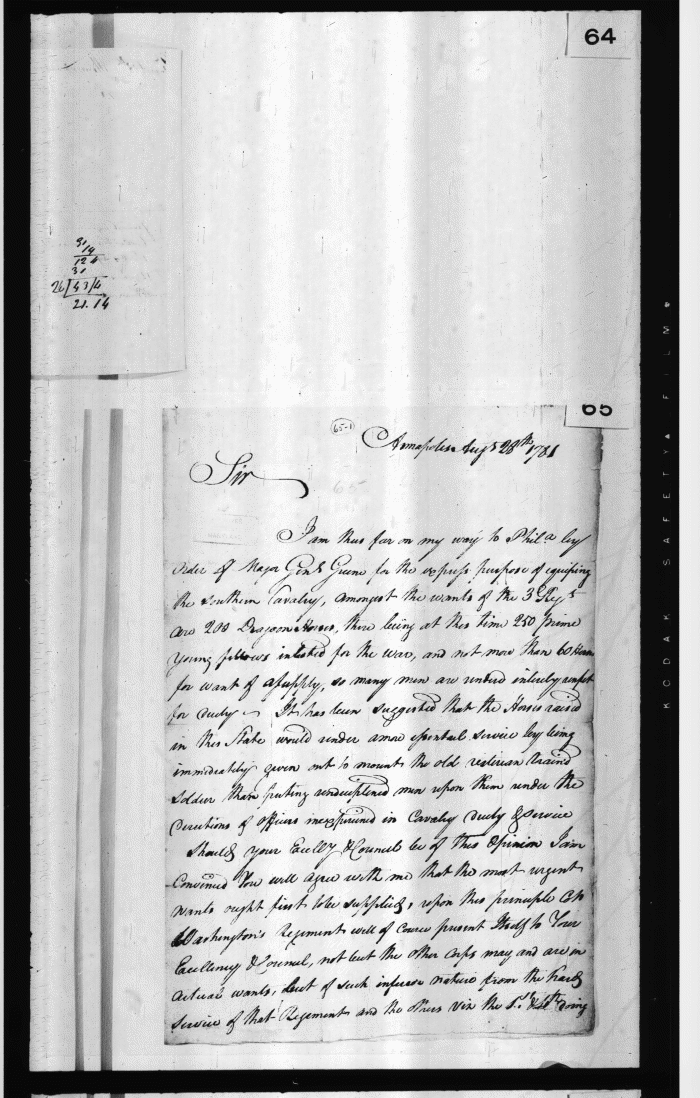 64
31
14
124
31
26 | 43/4
21.14
65
65-1
Annapolis Augst 28th 1781
Sir
65
I am thus far on my way to Phila by
order of Major Genl Greene for the express purpose of equiping
the Southern Cavalry, amongst the wants of the 3d Regt
are 200 Dragoon Horses, there being at this time 250 prime
young fellows inlisted for the war, and not more than 60 Horses
for want of a supply, so many men are renderd intirely unfit
for duty — It has been suggested that the Horses raised
in this State would render a more essential service by being
immediately given out to mount the old veteran traind
Soldier than puting undiciplined men upon them under the
Directions of officers inexperienced in Cavalry duty & service
Should your Excelly & Councel be of this Opinion I am
Convinced You will agree with me that the most urgent
wants ought first to be supplied, upon this principle Colo
Washington's Regiment will of Course present Itself to Your
Excellency & Councel, not but the other corps may and are in
actual wants, but of such inferior nature from the hard
service of that Regiment and the others Viz the 1st & 4th doing
KODAK SAFETY FILM